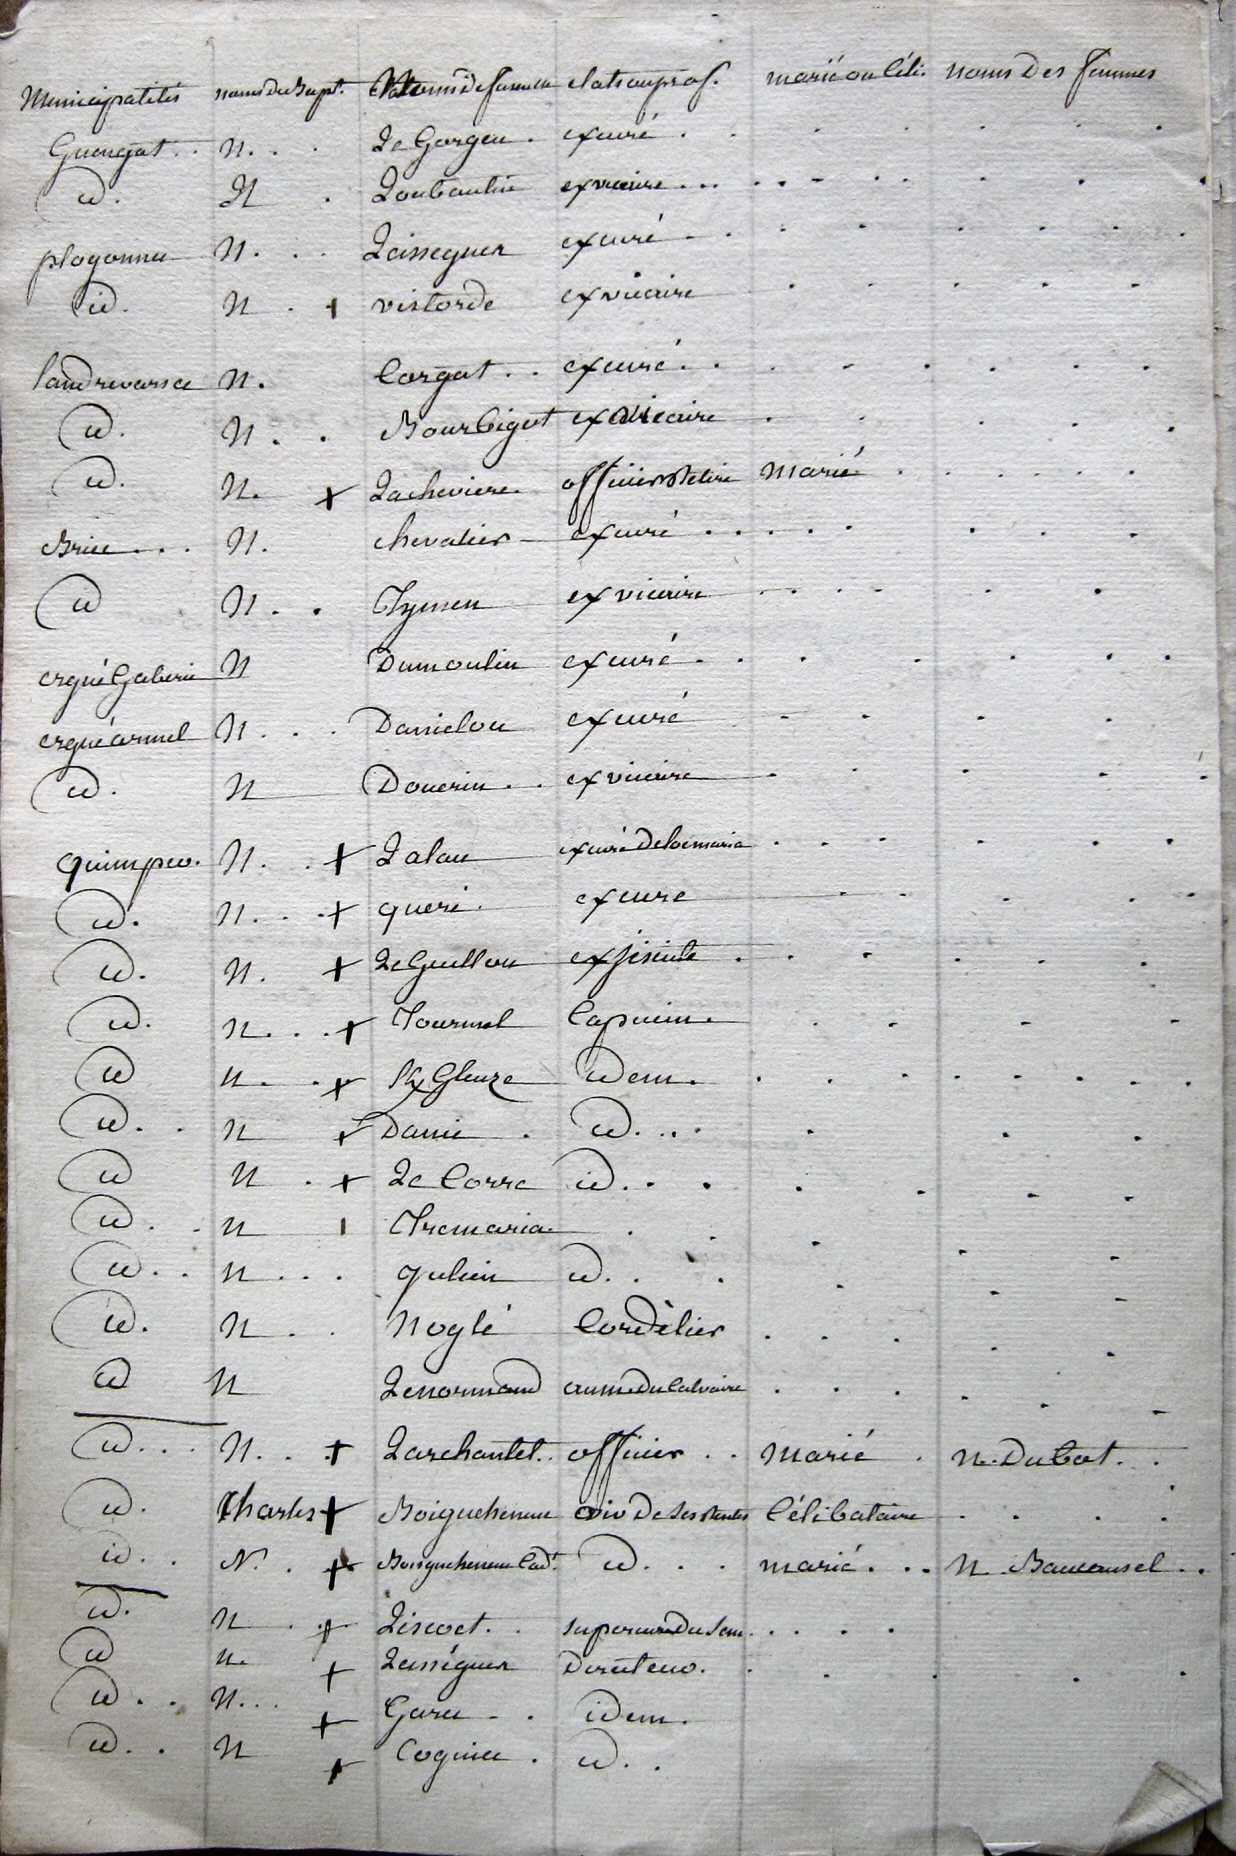 Municipalités noms du Bapt. Noms de famille etats ou prof. marié ou Céli. noms des femmes
Guengat . . N. . . Le Gorgeu . excuré . .
id. N . Louboutin exvicaire . . .
plogonnec N. . . Lasseguer excuré . .
id. N . + vistorde exvicaire
landrevarsec N. Corgat . . excuré . .
id. N. . Bourbigot exvicaire
id. N. + Lacheviere officier Retiré Marié
Briec . . . N. chevalier excuré . . .
id N. . Tymen exvicaire
ergué Gaberic N Dumoulin excuré . .
ergué armel N . . . Danielou excuré
id. N Douerin . . exvicaire
quimper. N. . + Lalau excuré de locmaria
id. N. . . + queré . excuré
id. N. + Le Guillou exjésuite .
id. N. . . + Tournel Capucin .
id N. . + Gleuze idem .
id. . N + Danié . id. . . .
id N . + Le Corre id. . .
id. . N Tremaria .
id. . N . . . qulien id. . .
id. N . . Noglé Cordélier
id N Lenormand aum. du Calvaire
id. . . N. . + Larchantel . . officier . . marié . N. Dubot . .
id. Charles + Boiguehenneuc viv de ses Rentes Célibataire
id. . N. . + Boisguehenneuc Cad. id. . . marié . . . N Beaucaussel . .
id. N . + Liscoet . . superieur du Sem.
id N. + Lasséguer Directeur .
id. . N. . . + Garec . . idem .
id. . N + Coquiec . id. . .